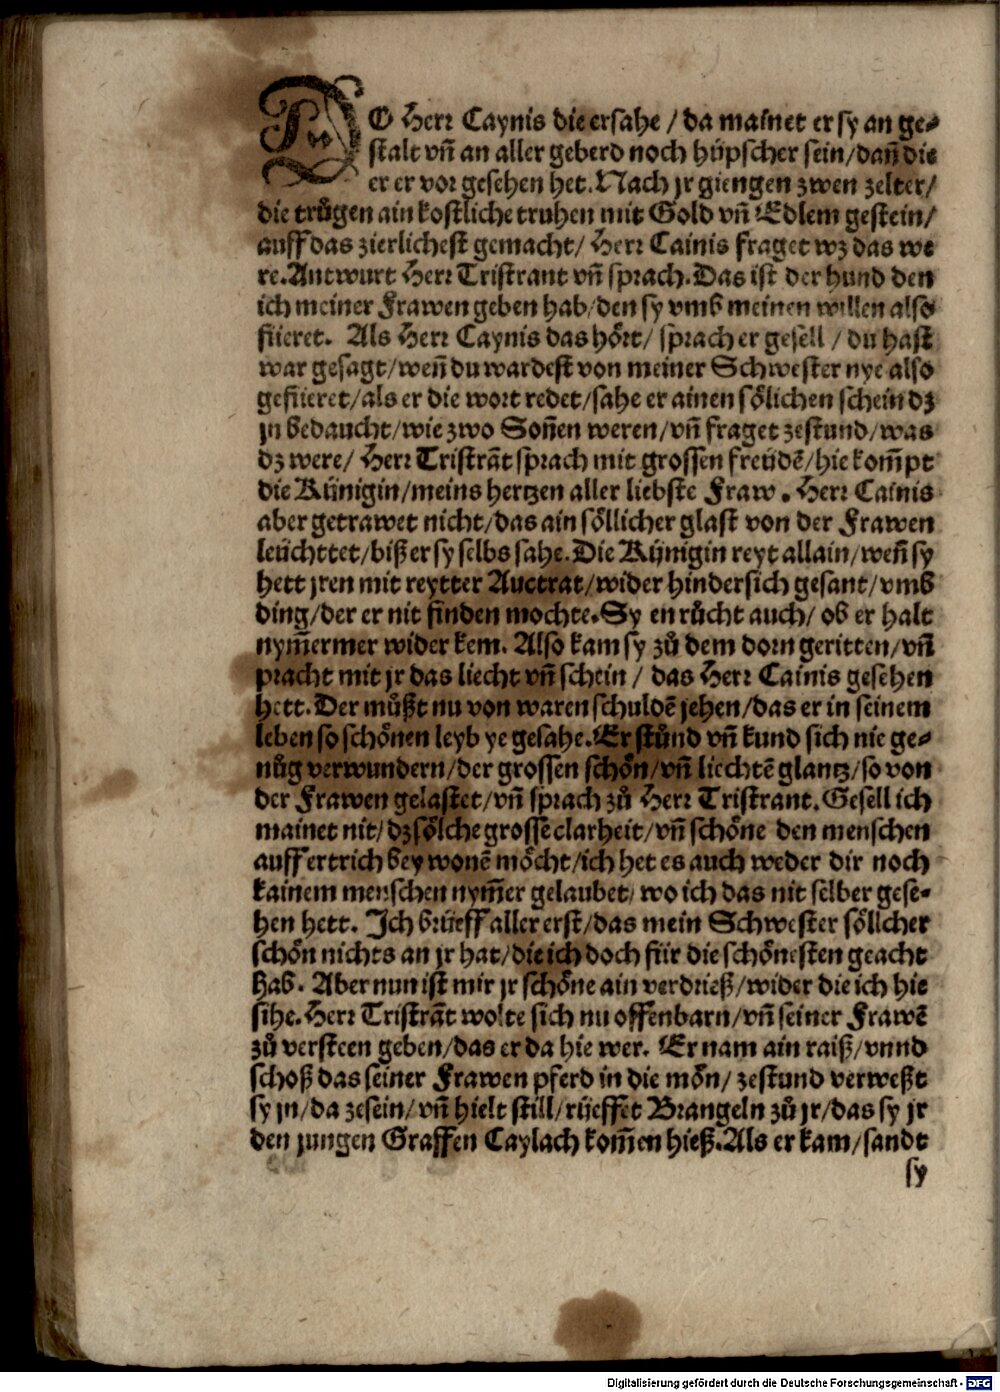 DO Herr Caynis die ersahe / da mainet er sy an ge⸗
stalt vñ an aller geberd noch hüpscher sein/dañ die
er er vor gesehen het. Nach jr giengen zwen zelter/
die trůgen ain kostliche truhen mit Gold vñ Edlem gestein/
auff das zierlichest gemacht/ Herr Cainis fraget wz das we
re. Antwurt Herr Tristrant vñ sprach. Das ist der hund den
ich meiner Frawen geben hab/den sy vmb meinen willen also
füeret. Als Herr Caynis das hört/ sprach er gesell / du hast
war gesagt/weñ du wardest von meiner Schwester nye also
gefüeret/als er die wort redet/sahe er ainen sölichen schein dz
jn bedaucht/wie zwo Soñen weren/vñ fraget zestund/was
dz were/ Herr Tristrãt sprach mit grossen freüdẽ/hie kom̃pt
die Künigin/meins hertzen aller liebste Fraw. Herr Cainis
aber getrawet nicht/das ain söllicher glast von der Frawen
leüchttet/biß er sy selbs sahe. Die Künigin reyt allain/weñ sy
hett jren mit reytter Auctrat/wider hindersich gesant/vmb
ding/der er nit finden mochte. Sy en růcht auch/ ob er halt
nym̃ermer wider kem. Also kam sy zů dem dorn geritten/vñ
pracht mit jr das liecht vñ schein / das Herr Cainis gesehen
hett. Der můßt nu von waren schuldẽ jehen/das er in seinem
leben so schönen leyb ye gesahe. Er stůnd vñ kund sich nie ge⸗
nůg verwundern/der grossen schön/vñ liechtẽ glantz/so von
der Frawen gelastet/vñ sprach zů Herr Tristrant. Gesell ich
mainet nit/dz sölche grosse clarheit/vñ schöne den menschen
auff ertrich bey wonẽ möcht/ich het es auch weder dir noch
kainem menschen nym̃er gelaubet/wo ich das nit selber gese⸗
hen hett. Ich brüeff aller erst/das mein Schwester söllcher
schön nichts an jr hat/die ich doch für die schönesten geacht
hab. Aber nun ist mir jr schöne ain verdrieß/wider die ich hie
sihe. Herr Tristrãt wolte sich nu offenbarn/vñ seiner Frawẽ
zů versteen geben/das er da hie wer. Er nam ain raiß/vnnd
schoß das seiner Frawen pferd in die mön/ zestund verweßt
sy jn/da zesein/vñ hielt still/rüeffet Brangeln zů jr/das sy jr
den jungen Graffen Caylach kom̃en hieß. Als er kam/sandt
sy
Digitalisierung gefördert durch die Deutsche Forschungsgemeinschaft - DFG